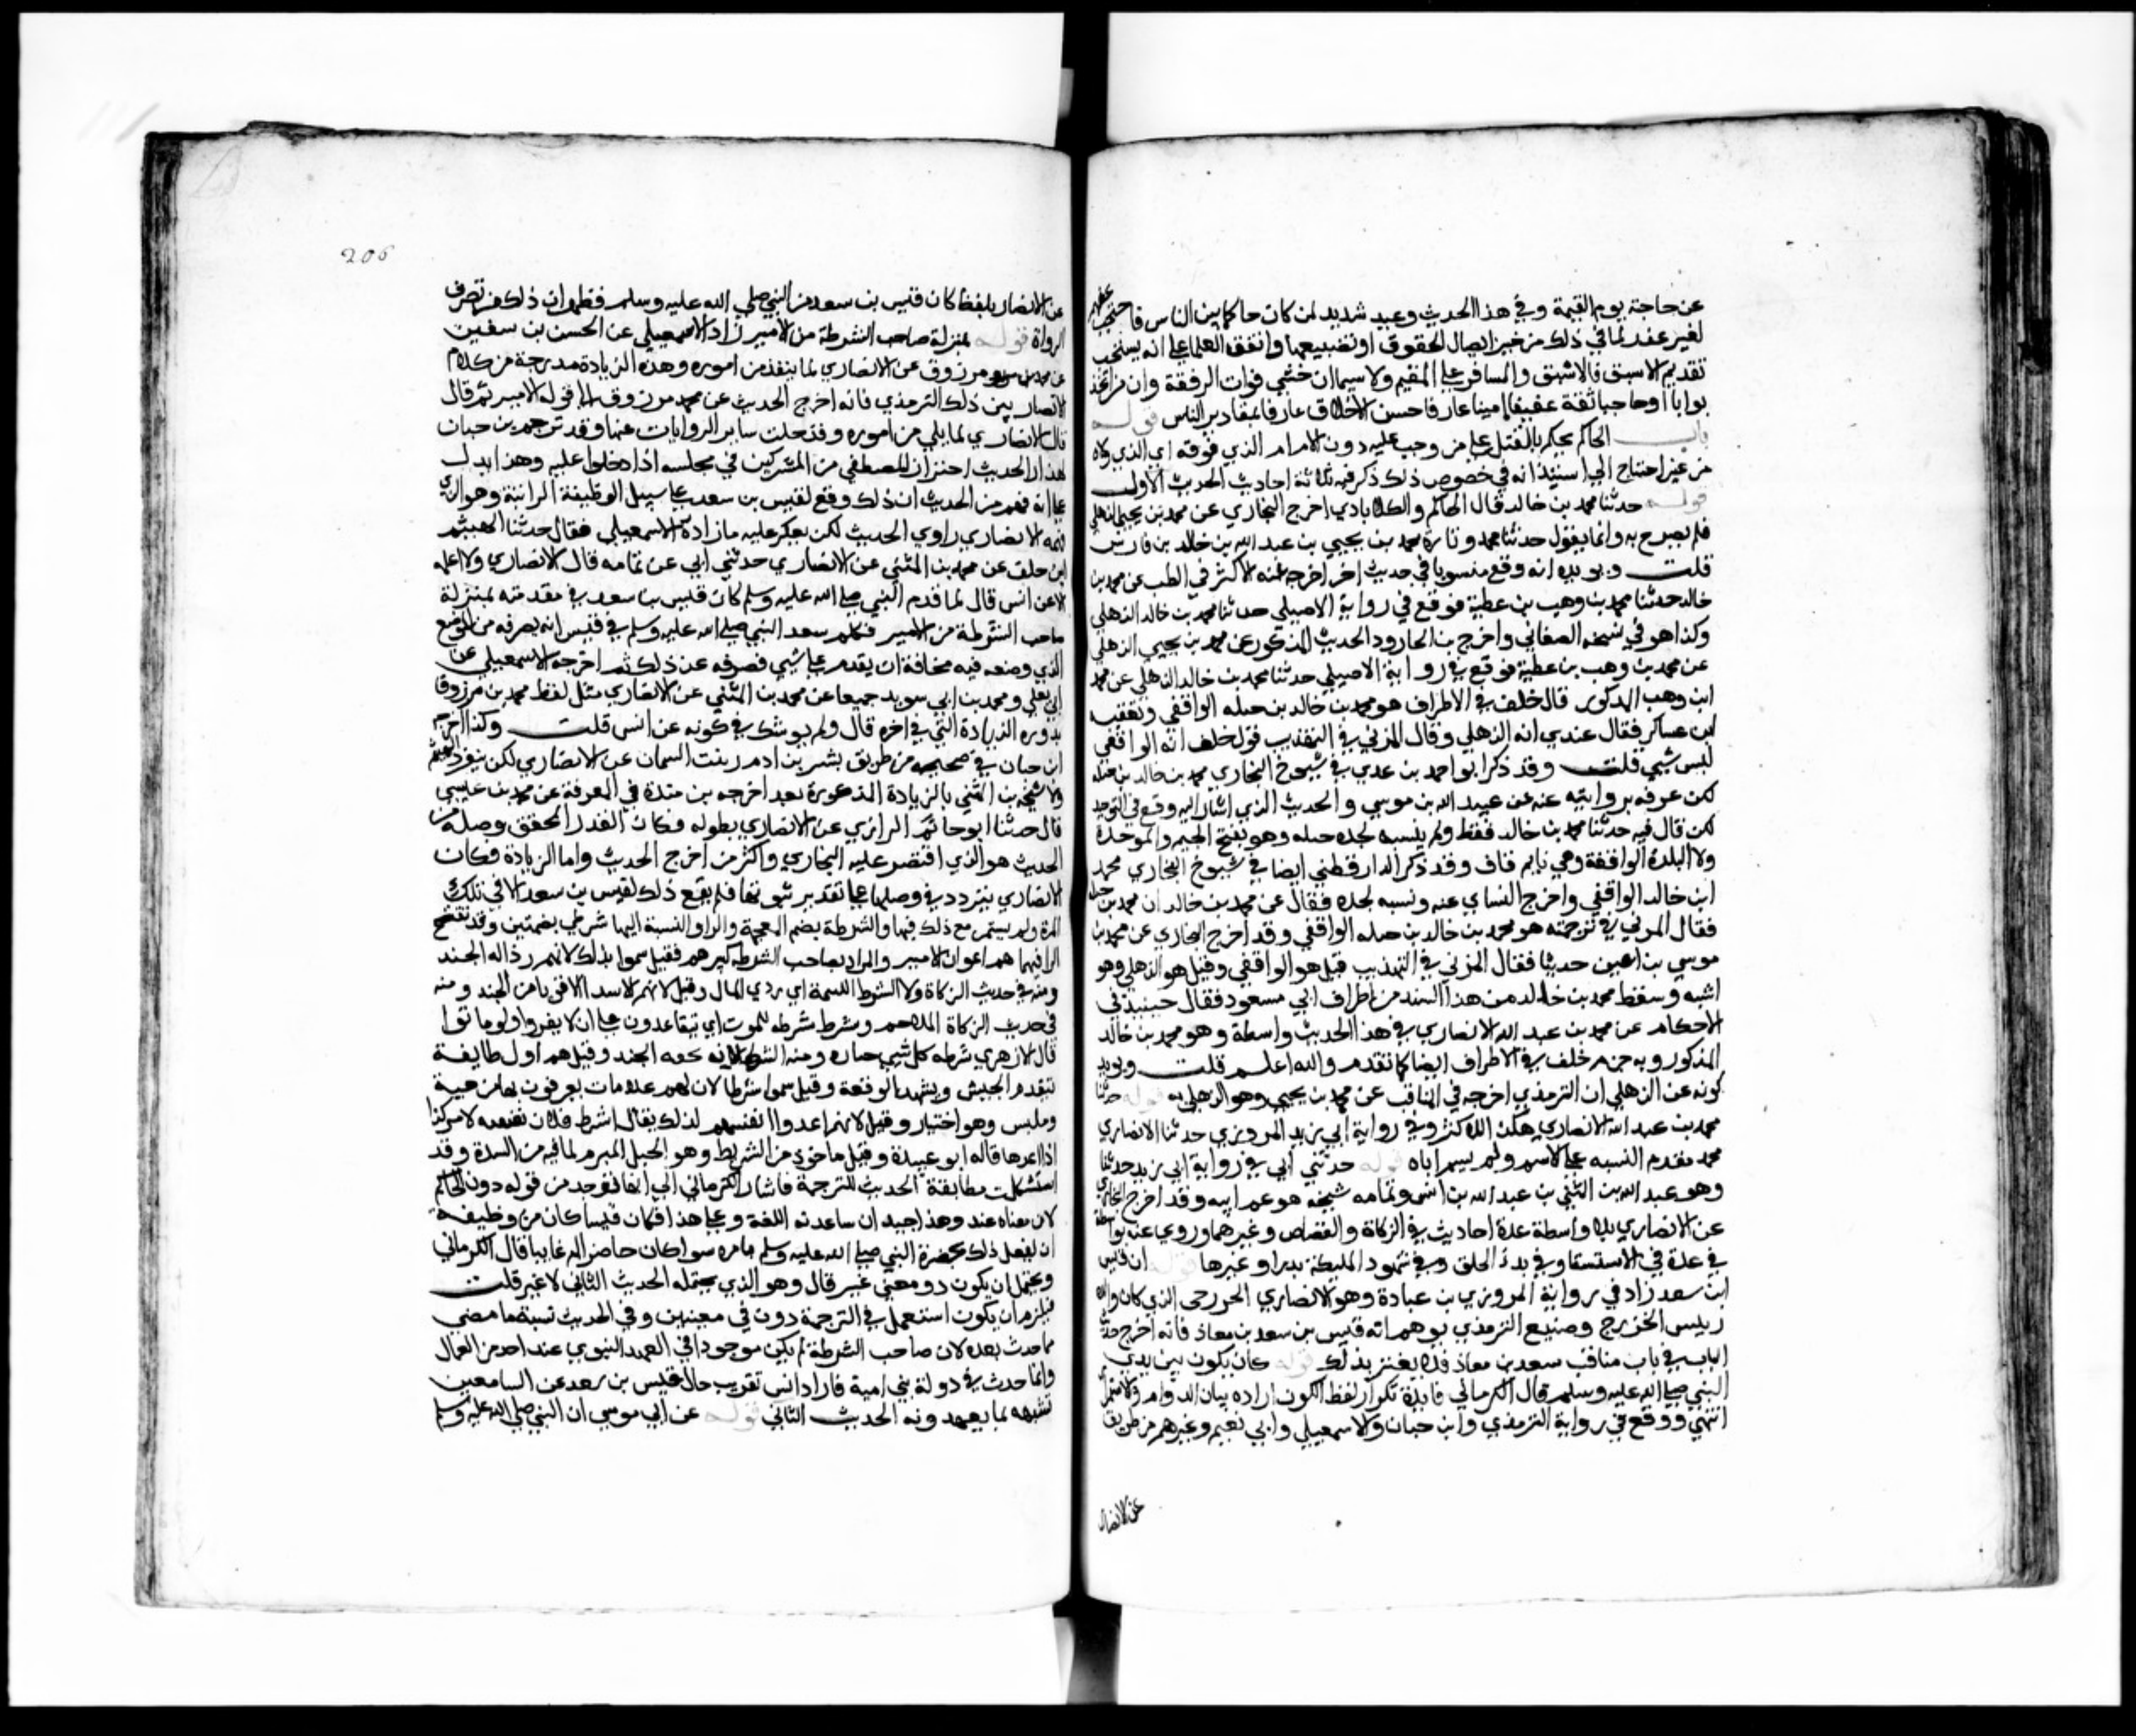 عن حاجته يوم القيمة وفي هذا الحديث وعيد شديد لمن كان حاكما بين الناس فاحتجب عنهم
لغير عذر لما في ذلك من خير ايصال الحقوق او تضييعها واتفق العلما على انه يستحب
تقديم الاسبق فالاسبق والمسافر على المقيم ولا سيما ان خشي فوات الرفقة وان من اتخذ
بوابا او حاجبا ثقة عفيفا امينا عارفا حسن الاخلاق عارفا بمقادير الناس قوله
باب الحاكم يحكم بالقتل على من وجب عليه دون الامام الذي فوقه اي الذي ولاه
من غير احتياج الى استيذانه في خصوص ذلك ذكر فيه ثلاثة احاديث الحديث الاول
قوله حدثنا محمد بن خالد قال الحاكم والكلاباذي اخرج البخاري عن محمد بن يحيى الذهلي
فلم يصرح به وانما يقول حدثنا محمد وتارة محمد بن يحيى بن عبد الله بن خالد بن فارس
قلت ويويده انه وقع منسوبا في حديث اخر اخرجه عنه الاكثر في الطب عن محمد بن
خالد حدثنا محمد بن وهب بن عطية فوقع في رواية الاصيلي حدثنا محمد بن خالد الذهلي
وكذا هو في نسخة الصغاني واخرج بن الجارود الحديث المذكور عن محمد بن يحيى الذهلي
عن محمد بن وهب بن عطية فوقع في رواية الاصيلي حدثنا محمد بن خالد الذهلي عن محمد
ابن وهب المذكور قال خلف في الاطراف هو محمد بن خالد بن جبله الواقفي وتعقبه
ابن عساكر فقال عندي انه الذهلي وقال المزني في التهذيب قول خلف انه الواقفي
ليس بشي قلت وقد ذكر ابو احمد بن عدي في شيوخ البخاري محمد بن خالد بن جبله
لكن عرفه بروايته عنه عن عبيد الله بن موسي والحديث الذي اشار اليه وقع في التوحيد
لكن قال فيه حدثنا محمد بن خالد فقط ولم ينسبه لجده جبله وهو بفتح الجيم والموحدة
ولا البلدة الواقفة وهي نايم قاف وقد ذكر الدارقطني ايضا في شيوخ البخاري محمد
ابن خالد الواقفي واخرج النساي عنه ونسبه لجده فقال عن محمد بن خالد ان محمد بن جبله
فقال المزني في ترجمته هو محمد بن خالد بن جبله الواقفي وقد اخرج البخاري عن محمد بن
موسي بن اعين حديثا فقال المزني في التهذيب قيل هو الواقفي وقيل هو الذهلي وهو
اشبه وسقط محمد بن خالد من هذا السند من اطراف ابي مسعود فقال حينيذ في
الاحكام عن محمد بن عبد الله الانصاري في هذا الحديث واسطة وهو محمد بن خالد
المذكور وبه جزم خلف في الاطراف ايضا كما تقدم والله اعلم قلت ويويد
كونه عن الذهلي ان الترمذي اخرجه في المناقب عن محمد بن يحيى وهو الذهلي به قوله حدثنا
محمد بن عبد الله الانصاري هكذا للاكثر وفي رواية ابي زيد المروزي حدثنا الانصاري
محمد فقدم النسبه على الاسم ولم يسم اباه قوله حدثني ابي في رواية ابي زيد حدثنا
وهو عبد الله بن المثني بن عبد الله بن انس وثمامه شيخه هو عم ابيه وقد اخرج البخاري
عن الانصاري بلا واسطة عدة احاديث في الزكاة والقصاص وغيرهما وروي عنه بواسطة
في عدة في الاستسقا وفي بدء الخلق وفي شهود المليكة بدرا وغيرها قوله ان قيس
ابن سعد زاد في رواية المروزي بن عبادة وهو الانصاري الخزرجي الذي كان والده
رييس الخزرج وصنيع الترمذي يوهم انه قيس بن سعد بن معاذ فانه اخرج حديث
الباب في باب مناقب سعد بن معاذ فلا يغتر بذلك قوله كان يكون بين يدي
النبي صلى الله عليه وسلم قال الكرماني فايدة تكرار لفظ الكون ارادة بيان الدوام والاستمرار
انتهي ووقع في رواية الترمذي وابن حبان والاسمعيلي وابي نعيم وغيرهم من طرق
عن الانصار
206
عن الانصار بلفظ كان قيس بن سعد من النبي صلي الله عليه وسلم فظهر ان ذلك من تصرف
الرواة قوله بمنزلة صاحب الشرطة من الامير زاد الاسمعيلي عن الحسن بن سفين
عن محمد بن مرزوق عن الانصاري لما ينفذ من اموره وهذه الزيادة مدرجة من كلام
الانصار بين ذلك الترمذي فانه اخرج الحديث عن محمد مرزوق الى قوله الامير ثم قال
قال الانصاري لما يلي من اموره وقد خلت ساير الروايات عنها وقد ترجم بن حبان
لهذا الحديث احتراز المصطفي من المشركين في مجلسه اذا دخلوا عليه وهذا يدل
على انه فهم من الحديث ان ذلك وقع لقيس بن سعد على سبيل الوظيفة الراتبة وهو الذي
فهمه الانصاري راوي الحديث لكن يعكر عليه ما زاده الاسمعيلي فقال حدثنا الهيثم
ابن خلف عن محمد بن المثني عن الانصاري حدثني ابي عن ثمامه قال الانصاري ولا اعلمه
الا عن انس قال لما قدم النبي صلى الله عليه وسلم كان قيس بن سعد في مقدمته بمنزلة
صاحب الشرطة من الامير فكلم سعد النبي صلى الله عليه وسلم في قيس ان يصرفه من الموضع
الذي وضعه فيه مخافة ان يقدم على شي فصرفه عن ذلك ثم اخرجه الاسمعيلي عن
ابي يعلي ومحمد بن ابي سويد جميعا عن محمد بن المثني عن الانصاري مثل لفظ محمد بن مرزوق
بدون الزيادة التي في اخره قال ولم يوشك في كونه عن انس قلت وكذا اخرجه
ابن حبان في صحيحه من طريق بشر بن ادم بن بنت السمان عن الانصاري لكن ينفرد الهيثم
ولا شيخه بن المثني بالزيادة المذكورة بعد اخرجه بن مندة في المعرفة عن محمد بن عيسي
قال حدثنا ابو حاتم الرازي عن الانصاري بطوله وكان القدر المحقق وصله من
الحديث هو الذي اقتصر عليه البخاري واكثر من اخرج الحديث واما الزيادة فكان
الانصاري يتردد في وصلها على تقدير ثبوتها فلم يقع ذلك لقيس بن سعد الا في تلك
المرة ولم يستمر مع ذلك فيها والشرطة بضم المعجمة والراو النسبة اليها شرطي بضمتين وقد تفتح
الرا فيهما هم اعوان الامير والمراد بصاحب الشرطة كبيرهم فقيل سموا بذلك لانهم رذاله الجند
ومنه في حديث الزكاة ولا الشرط اللئيمة اي ردي المال وقيل لانهم الاشد الاقويا من الجند ومنه
في حديث الملاحم وشرط شرطه للموت اي يتعاقدون على ان لا يفروا ولو ماتوا
قال الازهري شرطه كل شي خياره ومنه الشرط لانهم نخبه الجند وقيل هم اول طايفة
تتقدم الجيش وتشهد الوقعة وقيل سموا شرطا لان لهم علامات يعرفون بها من هية
وملبس وهو اختيار وقيل لانهم اعدوا انفسهم لذلك يقال اشرط فلان نفسه لامر كذا
اذا اعدها قاله ابو عبيدة وقيل ماخوذ من الشريط وهو الحبل المبرم لما فيه من الشدة وقد
استشكلت مطابقة الحديث للترجمة فاشار الكرماني الي انها توخذ من قوله دون الحاكم
لان معناه عند وهذا جيد ان ساعدته اللغة وعلى هذا فكان قيسا كان من وظيفته
ان يفعل ذلك بحضرة النبي صلى الله عليه وسلم بامره سوا كان حاضرا ام غايبا قال الكرماني
ويحتمل ان يكون دون معني غير قال وهو الذي يحتمله الحديث الثاني لا غير قلت
فيلزم ان يكون استعمل في الترجمة دون في معنيين وفي الحديث تشبيه ما مضي
بما حدث بعده لان صاحب الشرطة لم يكن موجودا في العهد النبوي عند احد من العمال
وانما حدث في دولة بني امية فاراد انس تقريب حال قيس بن سعد عن السامعين
تشبهه بما يعهدونه الحديث الثاني قوله عن ابي موسي ان النبي صلي الله عليه وسلم